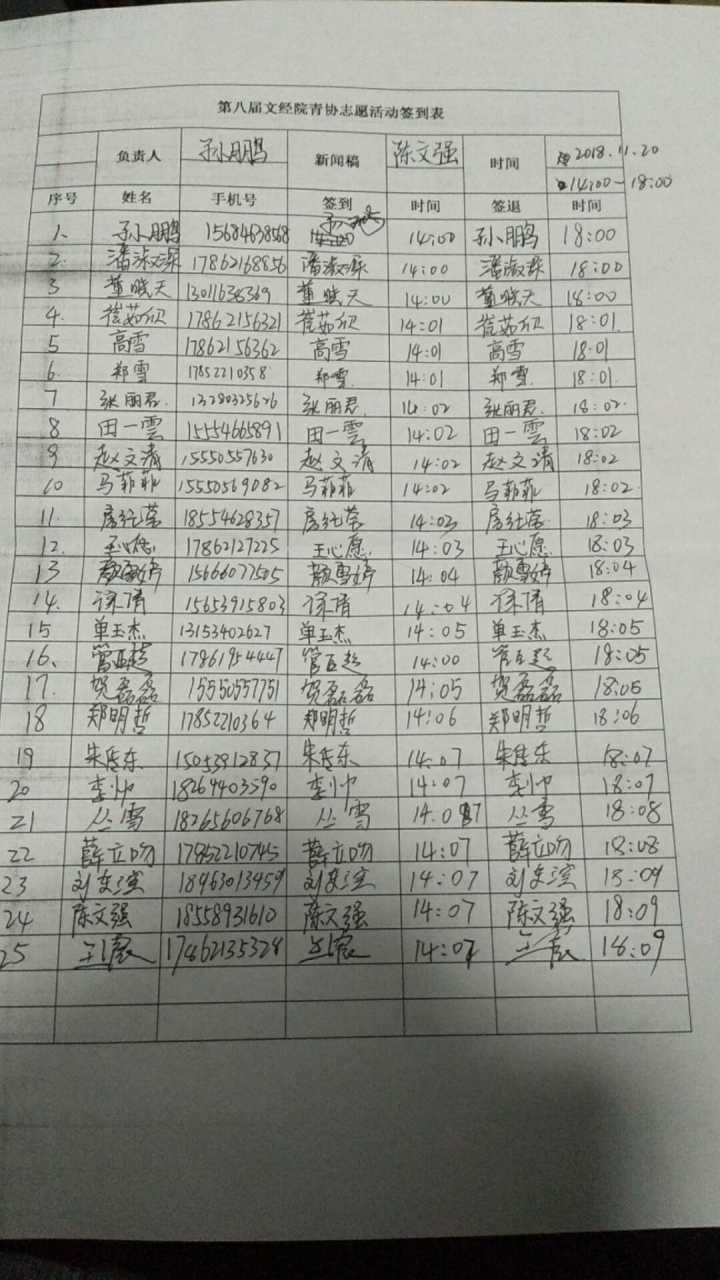 第八届文经院青协志愿活动签到表
负责人 孙小鹏 新闻稿 陈文强 时间 2018.11.20
14:00~18:00
序号 姓名 手机号 签到 时间 签退 时间
1. 孙小鹏 15684638568 14:00 孙小鹏 18:00
2. 潘淑琛 17862168856 潘淑琛 14:00 潘淑琛 18:00
3 董晓天 13011636369 董晓天 14:00 董晓天 18:00
4. 茹欣 17862156321 茹欣 14:01 茹欣 18:01
5 高雪 17862156362 高雪 14:01 高雪 18:01
6. 郑雪 17852210358 郑雪 14:01 郑雪 18:01
7 张丽君 13280325626 张丽君 14:02 张丽君 18:02
8 田一雲 15554665891 田一雲 14:02 田一雲 18:02
9 赵文清 15550557630 赵文清 14:02 赵文清 18:02
10 马菲菲 15550569082 马菲菲 14:02 马菲菲 18:02
11. 房纪荣 18554628357 房纪荣 14:03 房纪荣 18:03
12. 王心愿 17862127225 王心愿 14:03 王心愿 18:03
13 颜雪婷 15666077505 颜雪婷 14:04 颜雪婷 18:04
14. 徐倩 15653915803 徐倩 14:04 徐倩 18:04
15 单玉杰 13153402627 单玉杰 14:05 单玉杰 18:05
16、 管正超 17861954447 管正超 14:00 管正超 18:05
17. 贺磊磊 15550557751 贺磊磊 14:05 贺磊磊 18:05
18 郑明哲 17852210364 郑明哲 14:06 郑明哲 18:06
19 朱传东 15053912837 朱传东 14:07 朱传东 18:07
20 李帅 18264403590 李帅 14:07 李帅 18:07
21 丛雪 18265606768 丛雪 14:07 丛雪 18:08
22 薛立吻 17862210745 薛立吻 14:07 薛立吻 18:08
23 刘 18463013459 刘 14:07 刘 18:09
24 陈文强 18558931610 陈文强 14:07 陈文强 18:09
25 王 17862135328 王 14:07 王 18:09